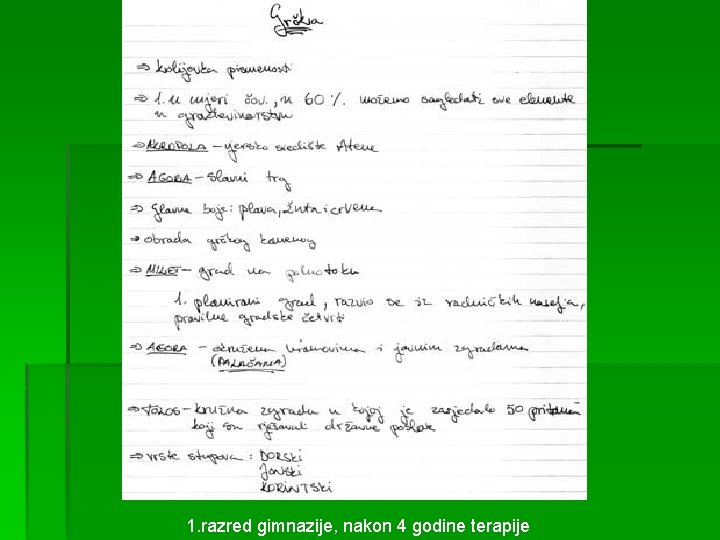 Grčka
⇒ kolijevka pismenosti
⇒ 1. u mjeri čov., u 60 % možemo sagledati sve elemente
u građevinarstvu
⇒ AKROPOLA – vjersko središte Atene
⇒ AGORA – glavni trg
⇒ glavne boje: plava, žuta i crvena
⇒ obrada grčkog kamenog
⇒ MILET – grad na poluotoku
1. planirani grad, razvio se iz radničkih naselja,
pravilne gradske četvrti
⇒ AGORA – okružena hramovima i javnim zgradama
(PALAČAMA)
⇒ TOLOS – kružna zgrada u kojoj je zasjedalo 50 pritana
koji su rješavali državne poslove
⇒ vrste stupova: DORSKI
JONSKI
KORINTSKI
1. razred gimnazije, nakon 4 godine terapije